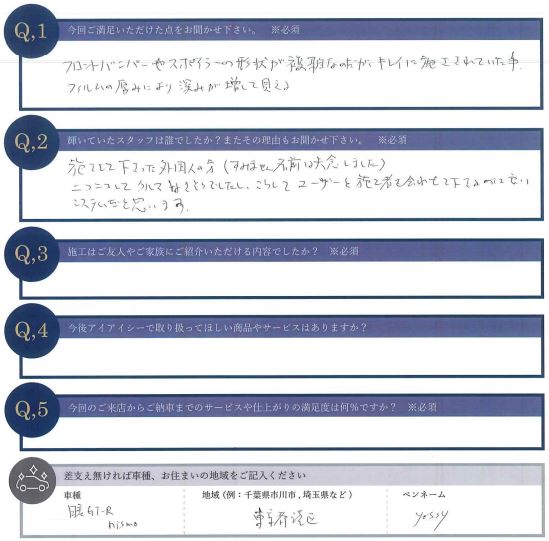 Q,1 今回ご満足いただけた点をお聞かせ下さい。 ※必須
フロントバンパーやスポイラーの形状が複雑なのだが、キレイに施工されていた事
フィルムの厚みにより深みが増して見える
Q,2 輝いていたスタッフは誰でしたか？またその理由もお聞かせ下さい。 ※必須
施工して下さった外国人の方（すみません名前は失念しました）
ニコニコして
こうして ユーザーと施工者を合わせて下さるのって良い
システムだと思います。
Q,3 施工はご友人やご家族にご紹介いただける内容でしたか？ ※必須
Q,4 今後アイアイシーで取り扱ってほしい商品やサービスはありますか？
Q,5 今回のご来店からご納車までのサービスや仕上がりの満足度は何％ですか？ ※必須
差支え無ければ車種、お住まいの地域をご記入ください
車種 地域（例：千葉県市川市,埼玉県など） ペンネーム
GT-R 東京都港区 yossy
nismo